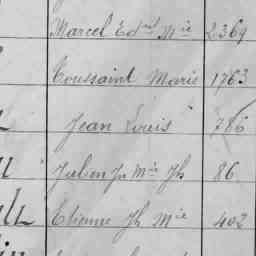 Marcel Edm^d M^ie 2369
Toussaint Marie 1763
Jean Louis 786
Julien J^n M^ie J^h 86
Etienne J^h M^ie 402